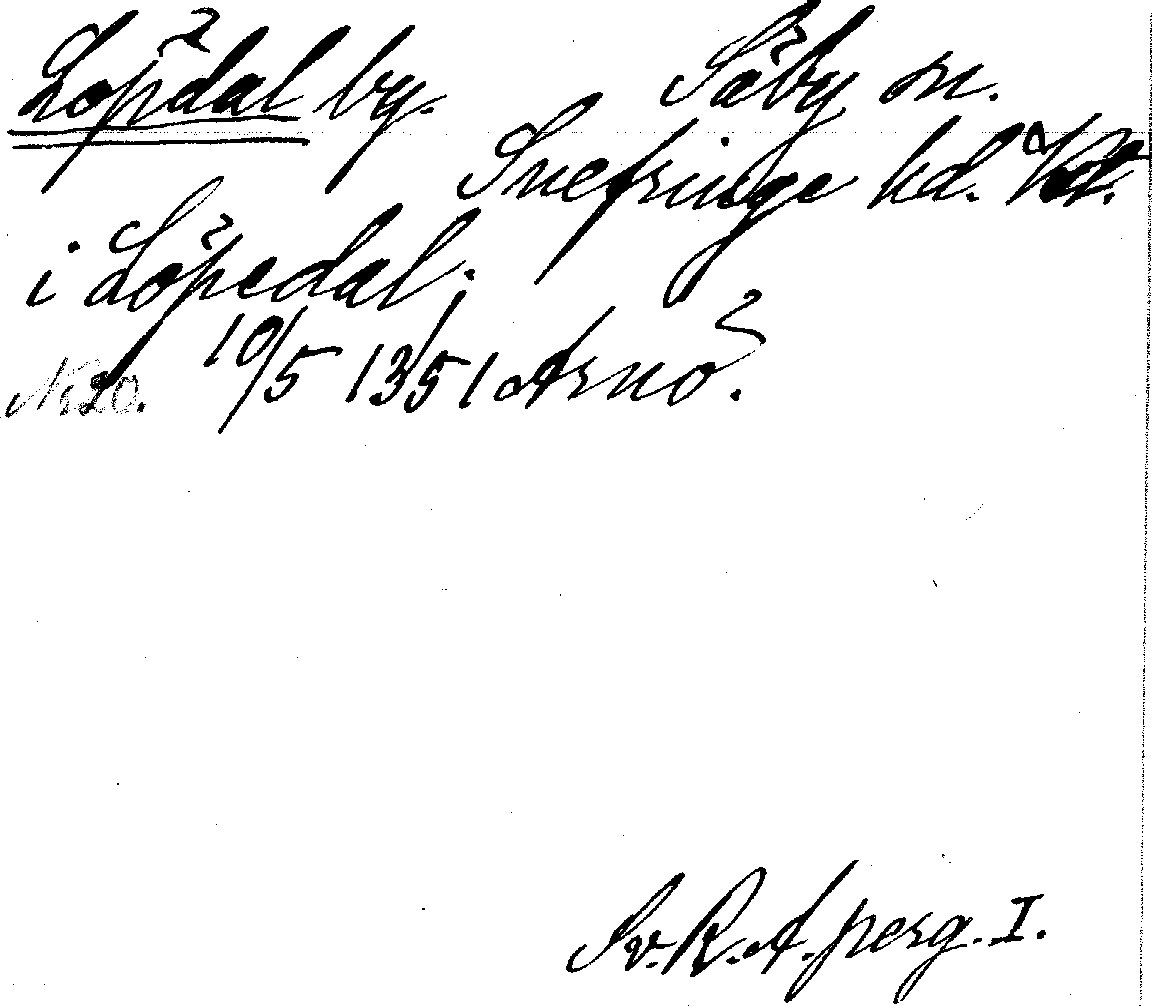 Löpdal by. Säby sn.
Snefringe hd. Vstm.
i Löpedal.
Nr 20. 10/5 1351 Arnö.
Sv. R. A. perg. I.